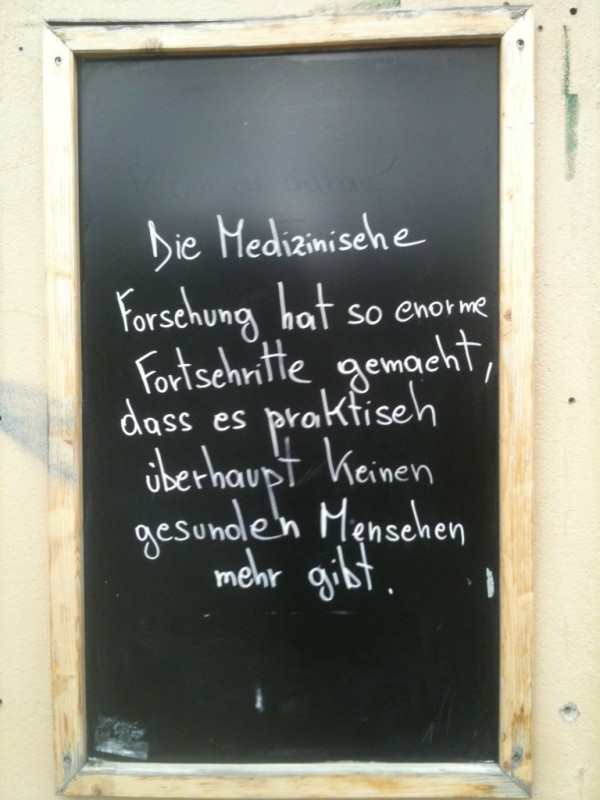 Die Medizinische
Forschung hat so enorme
Fortschritte gemacht,
dass es praktisch
überhaupt keinen
gesunden Menschen
mehr gibt.